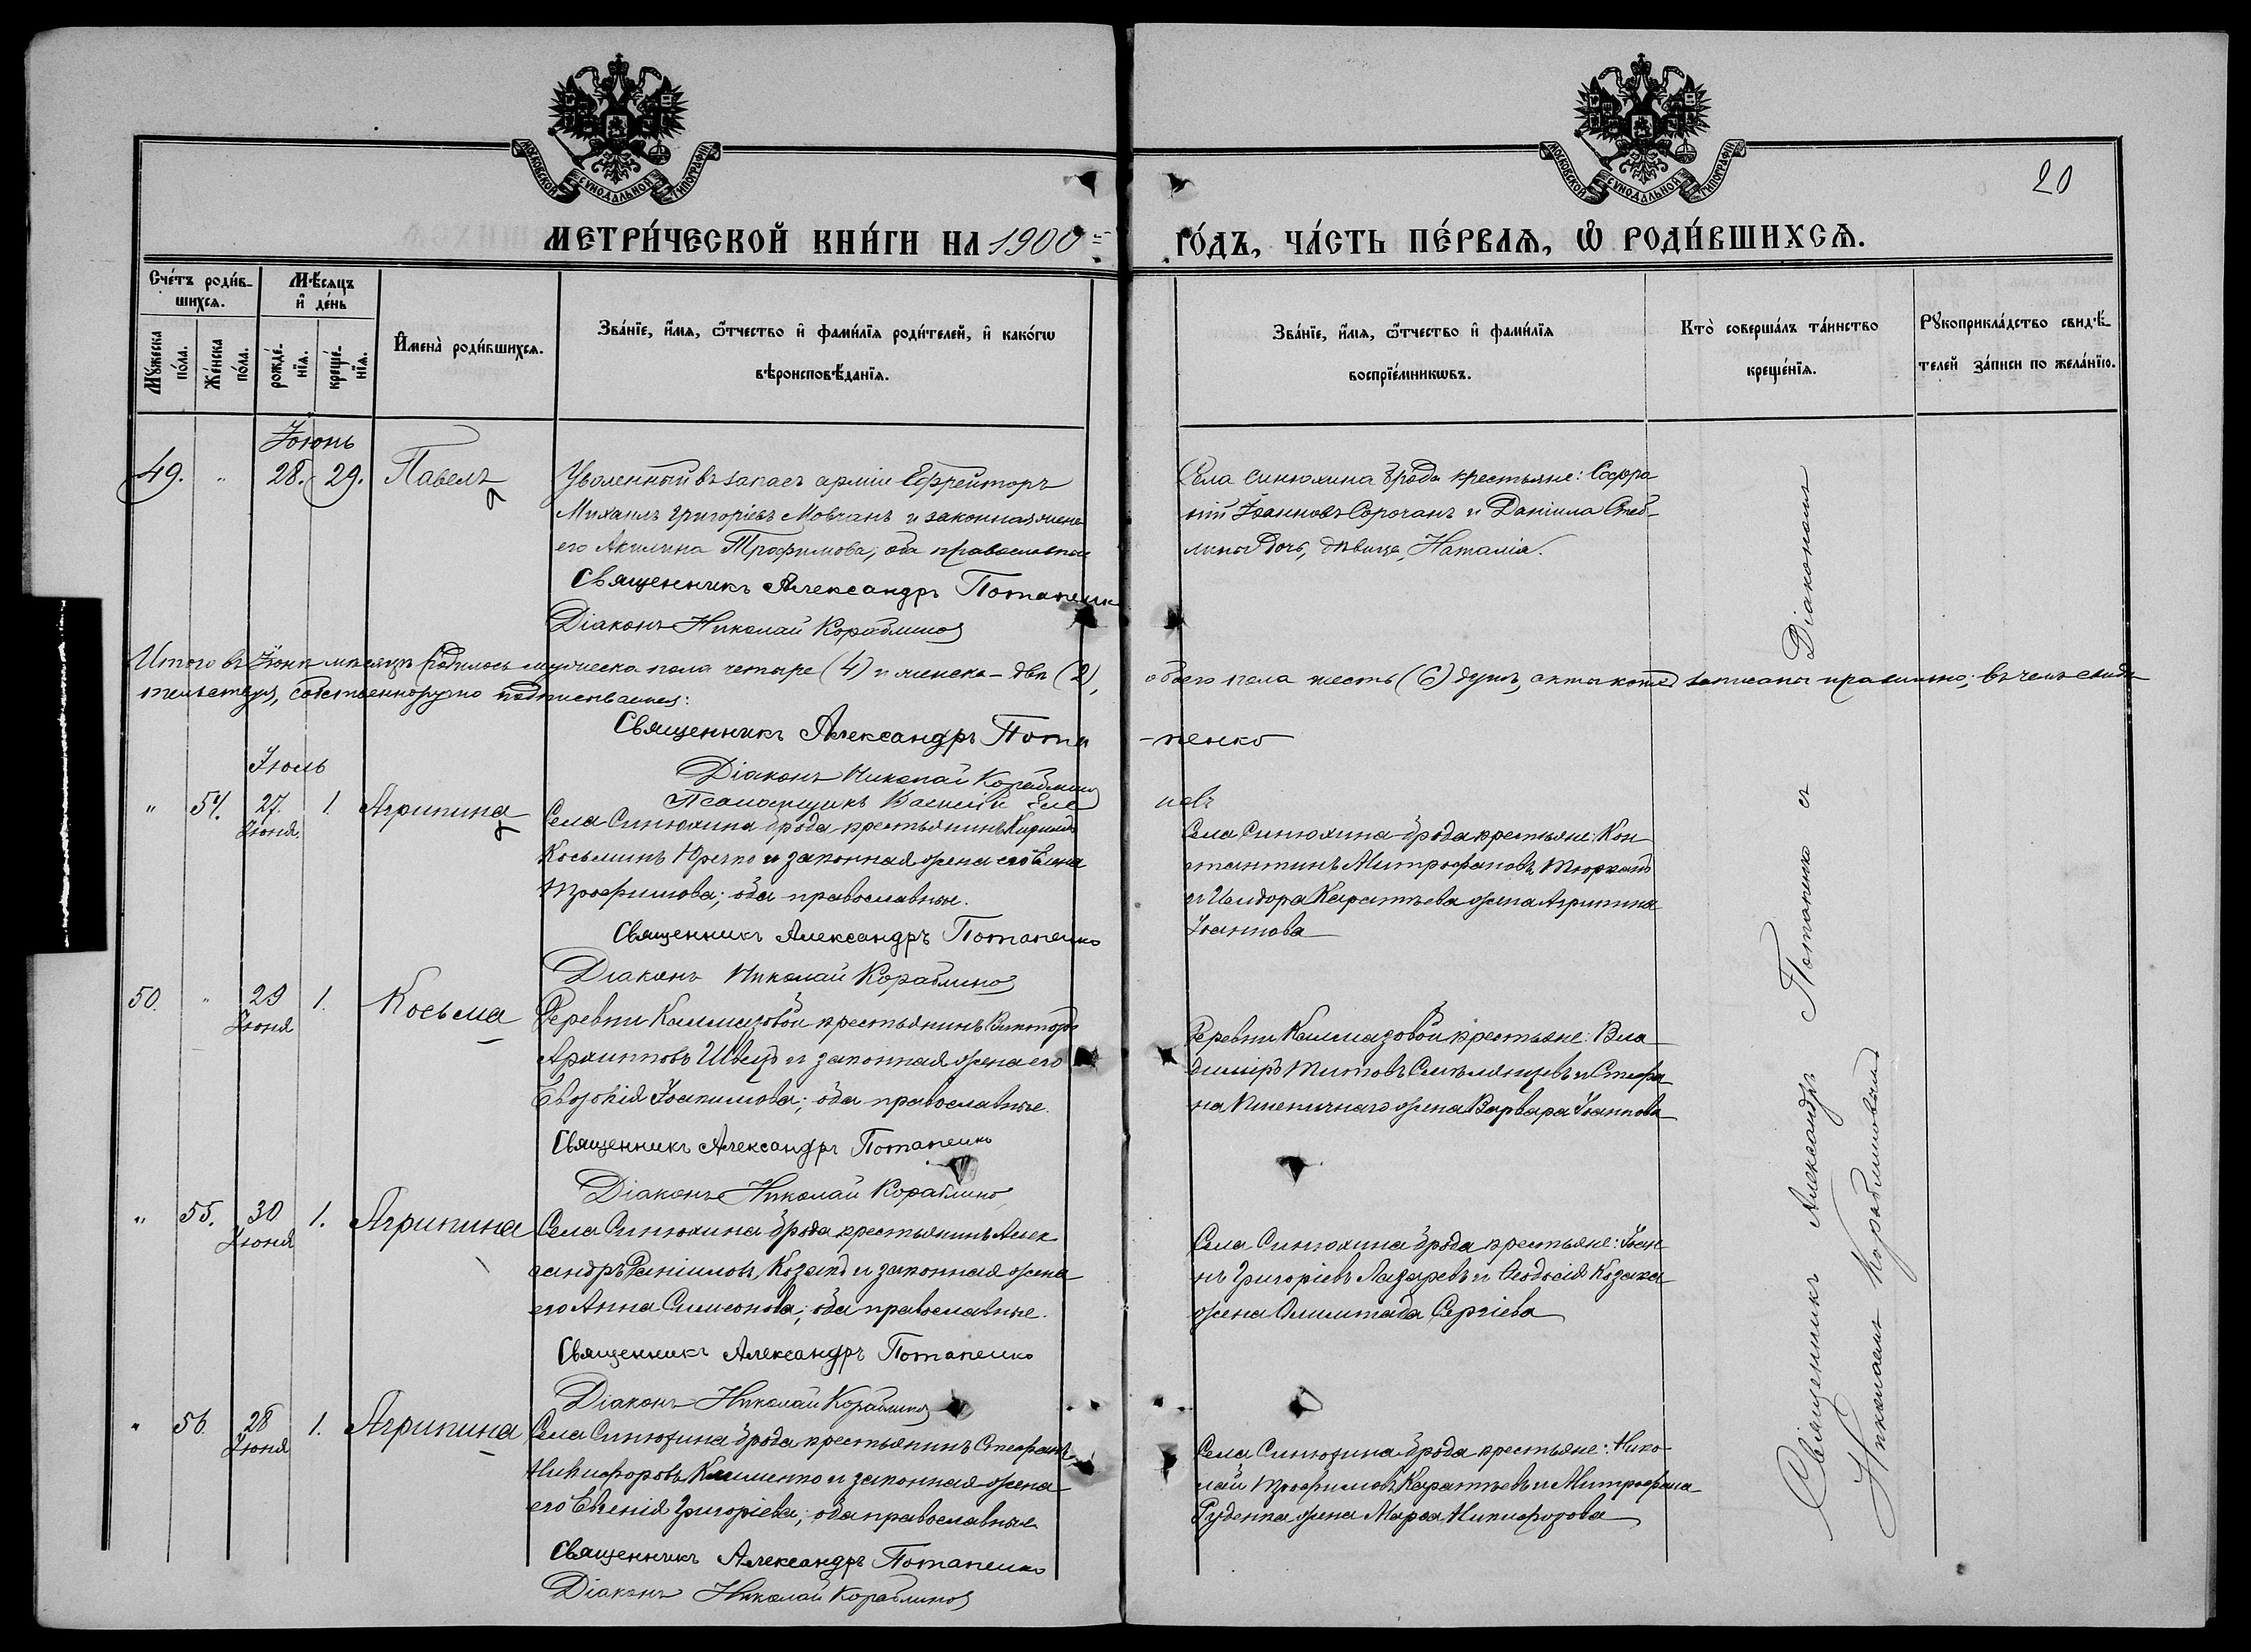 МОСКОВСКОЙ СѴНОДАЛЬНОЙ ТИПОГРАФІИ
МОСКОВСКОЙ СѴНОДАЛЬНОЙ ТИПОГРАФІИ
20
МЕТРИ́ЧЕСКОЙ КНИ́ГИ НА 1900
ГО́ДЪ, ЧА́СТЬ ПЕ́РВАѦ, Ѡ РОДИ́ВШИХСѦ.
Сче́тъ роди́в-
шихсѧ.
Мѣ́сѧцъ
и҆ де́нь
Мꙋ́жеска по́ла.
Же́нска по́ла.
рожде́-нїѧ.
креще́-нїѧ.
И҆мена̀ роди́вшихсѧ.
Зва́нїе, и҆́мѧ, ѻ҆́тчество и҆ фами́лїѧ роди́телей, и҆ како́гѡ
вѣроисповѣ́данїѧ.
Зва́нїе, и҆́мѧ, ѻ҆́тчество и҆ фами́лїѧ
воспрїе́мникѡвъ.
Кто̀ соверша́лъ та́инство
креще́нїѧ.
Рꙋкоприкла́дство свидѣ́-
телей за́писи по жела́нїю.
Іюнь
49. " 28. 29. Павелъ
Уволенный въ запасъ арміи Ефрейторъ
Михаилъ Григоріевъ Мовчанъ и законная жена
его Акилина Трофимова, оба православные
Священникъ Александръ Потапенко
Діаконъ Николай Кораблиновъ
Села Синюхина Брода крестьяне: Софро
ній Іоанновъ Сорочанъ и Даніила Стеб-
лины дочь, дѣвица, Наталія.
Итого въ Іюнѣ мѣсяцѣ родилось мужеска пола четыре (4) и женска - двѣ (2), обоего пола шесть (6) душъ, акты коихъ записаны правильно; въ чемъ свидѣ
тельствуя, собственноручно подписываемся:
Священникъ Александръ Пота-пенко
Діаконъ Николай Кораблиновъ
Псаломщикъ Василій
Іюль
" 54. 27. Іюня. 1. Агрипина
Села Синюхина Брода крестьянинъ Кириллъ
Косьминъ Гречко и законная жена его Елена
Трофимова; оба православные.
Священникъ Александръ Потапенко
Діаконъ Николай Кораблиновъ
Села Синюхина-Брода крестьяне: Кон
стантинъ Митрофановъ Тюркалъ
и Исидора Каратѣева жена Агрипина
Іоаннова
50. " 29 Іюня 1. Косьма
Деревни Калмазовой крестьянинъ Викторъ
Архиповъ Швецъ и законная жена его
Евдокія Іоакимова; оба православные.
Священникъ Александръ Потапенко
Діаконъ Николай Кораблиновъ
Деревни Калмазовой крестьяне: Вла
димиръ Титовъ Смѣлянцевъ и Стефа
на Пшеничнаго жена Варвара Іоаннова
" 55. 30 Іюня 1. Агрипина
Села Синюхина Брода крестьянинъ Алек
сандръ Даніиловъ Козакъ и законная жена
его Анна Симеонова; оба православные.
Священникъ Александръ Потапенко
Діаконъ Николай Кораблиновъ
Села Синюхина Брода крестьяне: Іоан
нъ Григоріевъ Лазаревъ и Ѳеодосія Козака
жена Олимпіада Сергіева
" 56. 28 Іюня 1. Агрипина
Села Синюхина Брода крестьянинъ Стефанъ
Никифоровъ Клименко и законная жена
его Евгенія Григоріева; оба православные.
Священникъ Александръ Потапенко
Діаконъ Николай Кораблиновъ
Села Синюхина Брода крестьяне: Нико-
лай Трофимовъ Каратѣевъ и Митрофана
Руденка жена Марѳа Никифорова
Священникъ Александръ Потапенко съ Діакономъ
Николаемъ Кораблиновымъ